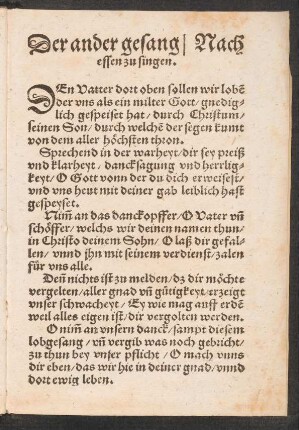 Der ander gesang/ Nach
essen zu singen.
DEn Vatter dort oben sollen wir lobẽ
der vns als ein milter Gott/ gnedig-
lich gespeiset hat/ durch Christum/
seinen Son/ durch welchẽ der segen kumt
von dem aller höchsten thron.
Sprechend in der warheyt/ dir sey preiß
vnd klarheyt/ dancksagung vnd herrlig-
keyt/ O Gott vonn der du dich erweisest/
vnd vns heut mit deiner gab leiblich hast
gespeyset.
Nim̃ an das danckopffer/ O Vater vñ
schöffer/ welchs wir deinen namen thun/
in Christo deinem Sohn/ O laß dir gefal-
len/ vnnd jhn mit seinem verdienst/ zalen
für vns alle.
Deñ nichts ist zu melden/ dz dir möchte
vergelten/ aller gnad vñ gütigkeyt/ erzeigt
vnser schwacheyt/ Ey wie mag auff erdẽ
weil alles eigen ist/ dir vergolten werden.
O nim̃ an vnsern danck/ sampt diesem
lobgesang/ vñ vergib was noch gebricht/
zu thun bey vnser pflicht/ O mach vnns
dir eben/ das wir hie in deiner gnad/ vnnd
dort ewig leben.